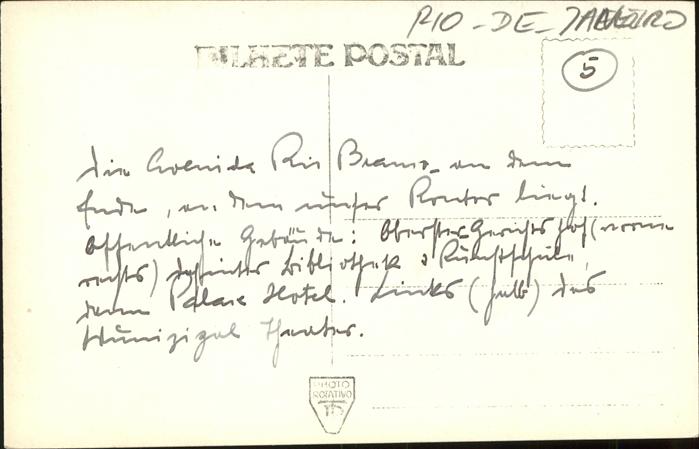 RIO-DE-JANEIRO
BILHETE POSTAL
5
Die Avenida Rio Branco an dem
Ende, an dem unser Kontor liegt.
Öffentliche Gebäude: Oberster Gerichtshof (vorne
rechts) dahinter Bibliothek & Kunstschule,
dann Palace Hotel. Links (halb) das
Munizipal Theater.
PHOTO
ROTATIVO